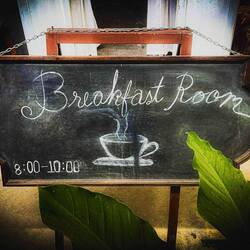 Breakfast Room
8:00-10:00